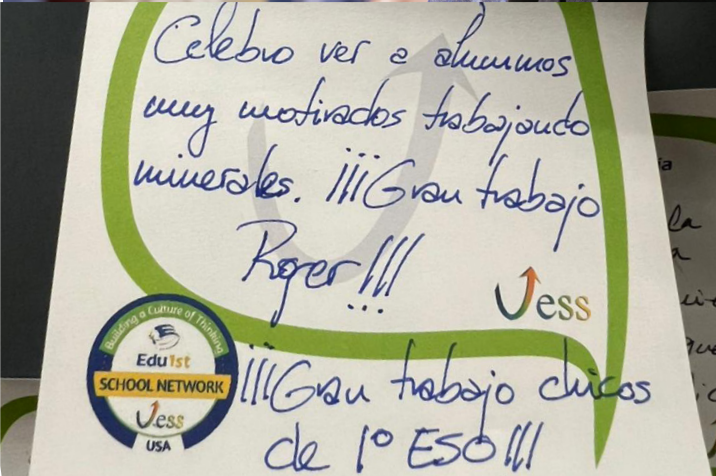 Celebro ver a alumnos
muy motivados trabajando
minerales. ¡¡¡Gran trabajo
Roger!!!
Vess
Building a Culture of Thinking
Edu1st
SCHOOL NETWORK
Vess
USA
¡¡¡Gran trabajo chicos
de 1º ESO!!!
ia
la
a
que